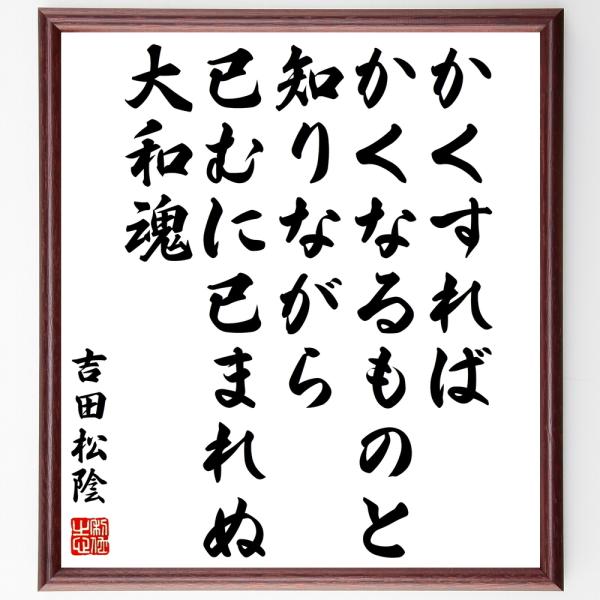 かくすれば
かくなるものと
知りながら
已むに已まれぬ
大和魂
吉田松陰